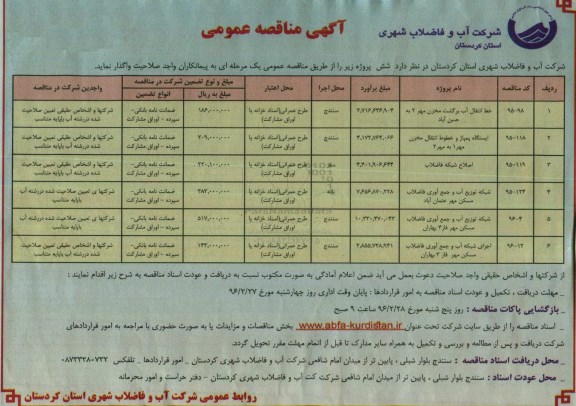 شرکت آب و فاضلاب شهری
استان کردستان
آگهی مناقصه عمومی
شرکت آب و فاضلاب شهری استان کردستان در نظر دارد شش پروژه زیر را از طریق مناقصه عمومی یک مرحله ای به پیمانکاران واجد صلاحیت واگذار نماید.
ردیف کد مناقصه نام پروژه مبلغ برآورد محل اجرا محل اعتبار مبلغ و نوع تضمین شرکت در مناقصه واجدین شرکت در مناقصه
مبلغ به ریال نوع تضمین
۱ ۹۵-۹۸ خط انتقال آب برگشت مخزن مهر ۲ به سنندج طرح عمرانی(اسناد خزانه یا ۱۸۶,۰۰۰,۰۰۰ ضمانت نامه بانکی- شرکتها و اشخاص حقیقی تعیین صلاحیت
حسن آباد اوراق مشارکت) سپرده - اوراق مشارکت شده دررشته آب باپایه متناسب
۲ ۹۵-۱۱۸ ایستگاه پمپاژ و خطوط انتقال مخزن سنندج طرح عمرانی(اسناد خزانه یا ۲۰۹,۰۰۰,۰۰۰ ضمانت نامه بانکی- شرکتها و اشخاص حقیقی تعیین صلاحیت
مهر۱ به مهر۲ اوراق مشارکت) سپرده - اوراق مشارکت شده دررشته آب باپایه متناسب
۳ ۹۵-۱۱۹ اصلاح شبکه فاضلاب طرح عمرانی(اسناد خزانه یا ۲۲۰,۱۰۰,۰۰۰ ضمانت نامه بانکی- شرکتها و اشخاص حقیقی تعیین صلاحیت
اوراق مشارکت) سپرده - اوراق مشارکت شده دررشته آب باپایه متناسب
۴ ۹۵-۱۲۳ شبکه توزیع آب و جمع آوری فاضلاب بانه طرح عمرانی(اسناد خزانه یا ۳۸۳,۰۰۰,۰۰۰ ضمانت نامه بانکی- شرکتها ی تعیین صلاحیت شده دررشته آب
مسکن مهر عثمان آباد اوراق مشارکت) سپرده - اوراق مشارکت باپایه متناسب
۵ ۹۶-۴ شبکه توزیع آب و جمع آوری فاضلاب سنندج طرح عمرانی(اسناد خزانه یا ۵۱۷,۰۰۰,۰۰۰ ضمانت نامه بانکی- شرکتها ی تعیین صلاحیت شده دررشته آب
مسکن مهر فاز۳ بهاران اوراق مشارکت) سپرده - اوراق مشارکت باپایه متناسب
۶ ۹۶-۱۲ اجرای شبکه آب و جمع آوری فاضلاب سنندج طرح عمرانی(اسناد خزانه یا ۱۴۳,۰۰۰,۰۰۰ ضمانت نامه بانکی- شرکتها و اشخاص حقیقی تعیین صلاحیت
مسکن مهر فاز ۲ بهاران اوراق مشارکت) سپرده - اوراق مشارکت شده دررشته آب باپایه متناسب
از شرکتها و اشخاص حقیقی واجد صلاحیت دعوت بعمل می آید ضمن اعلام آمادگی به صورت مکتوب نسبت به دریافت و عودت اسناد مناقصه به شرح زیر اقدام نمایند :
_ مهلت دریافت ، تکمیل و عودت اسناد مناقصه به امور قراردادها : پایان وقت اداری روز چهارشنبه مورخ ۹۶/۲/۲۷
_ بازگشایی پاکات مناقصه : روز پنج شنبه مورخ ۹۶/۲/۲۸ ساعت ۹ صبح
_ اسناد مناقصه را از طریق سایت شرکت تحت عنوان www.abfa-kurdistan.ir بخش مناقصات و مزایدات یا به صورت حضوری با مراجعه به امور قراردادهای
شرکت دریافت و پس از مطالعه و بررسی و تکمیل به همراه سایر مدارک تا قبل از اتمام مهلت مقرر تحویل گردد.
_ محل دریافت اسناد مناقصه : سنندج بلوار شبلی ، پایین تر از میدان امام شافعی شرکت آب و فاضلاب شهری کردستان _ امور قراردادها _ تلفکس ۰۸۷۳۳۲۸۰۷۳۲
_ محل عودت اسناد : سنندج بلوار شبلی ، پایین تر از میدان امام شافعی شرکت آب و فاضلاب شهری کردستان - دفتر حراست و امور محرمانه
روابط عمومی شرکت آب و فاضلاب شهری استان کردستان